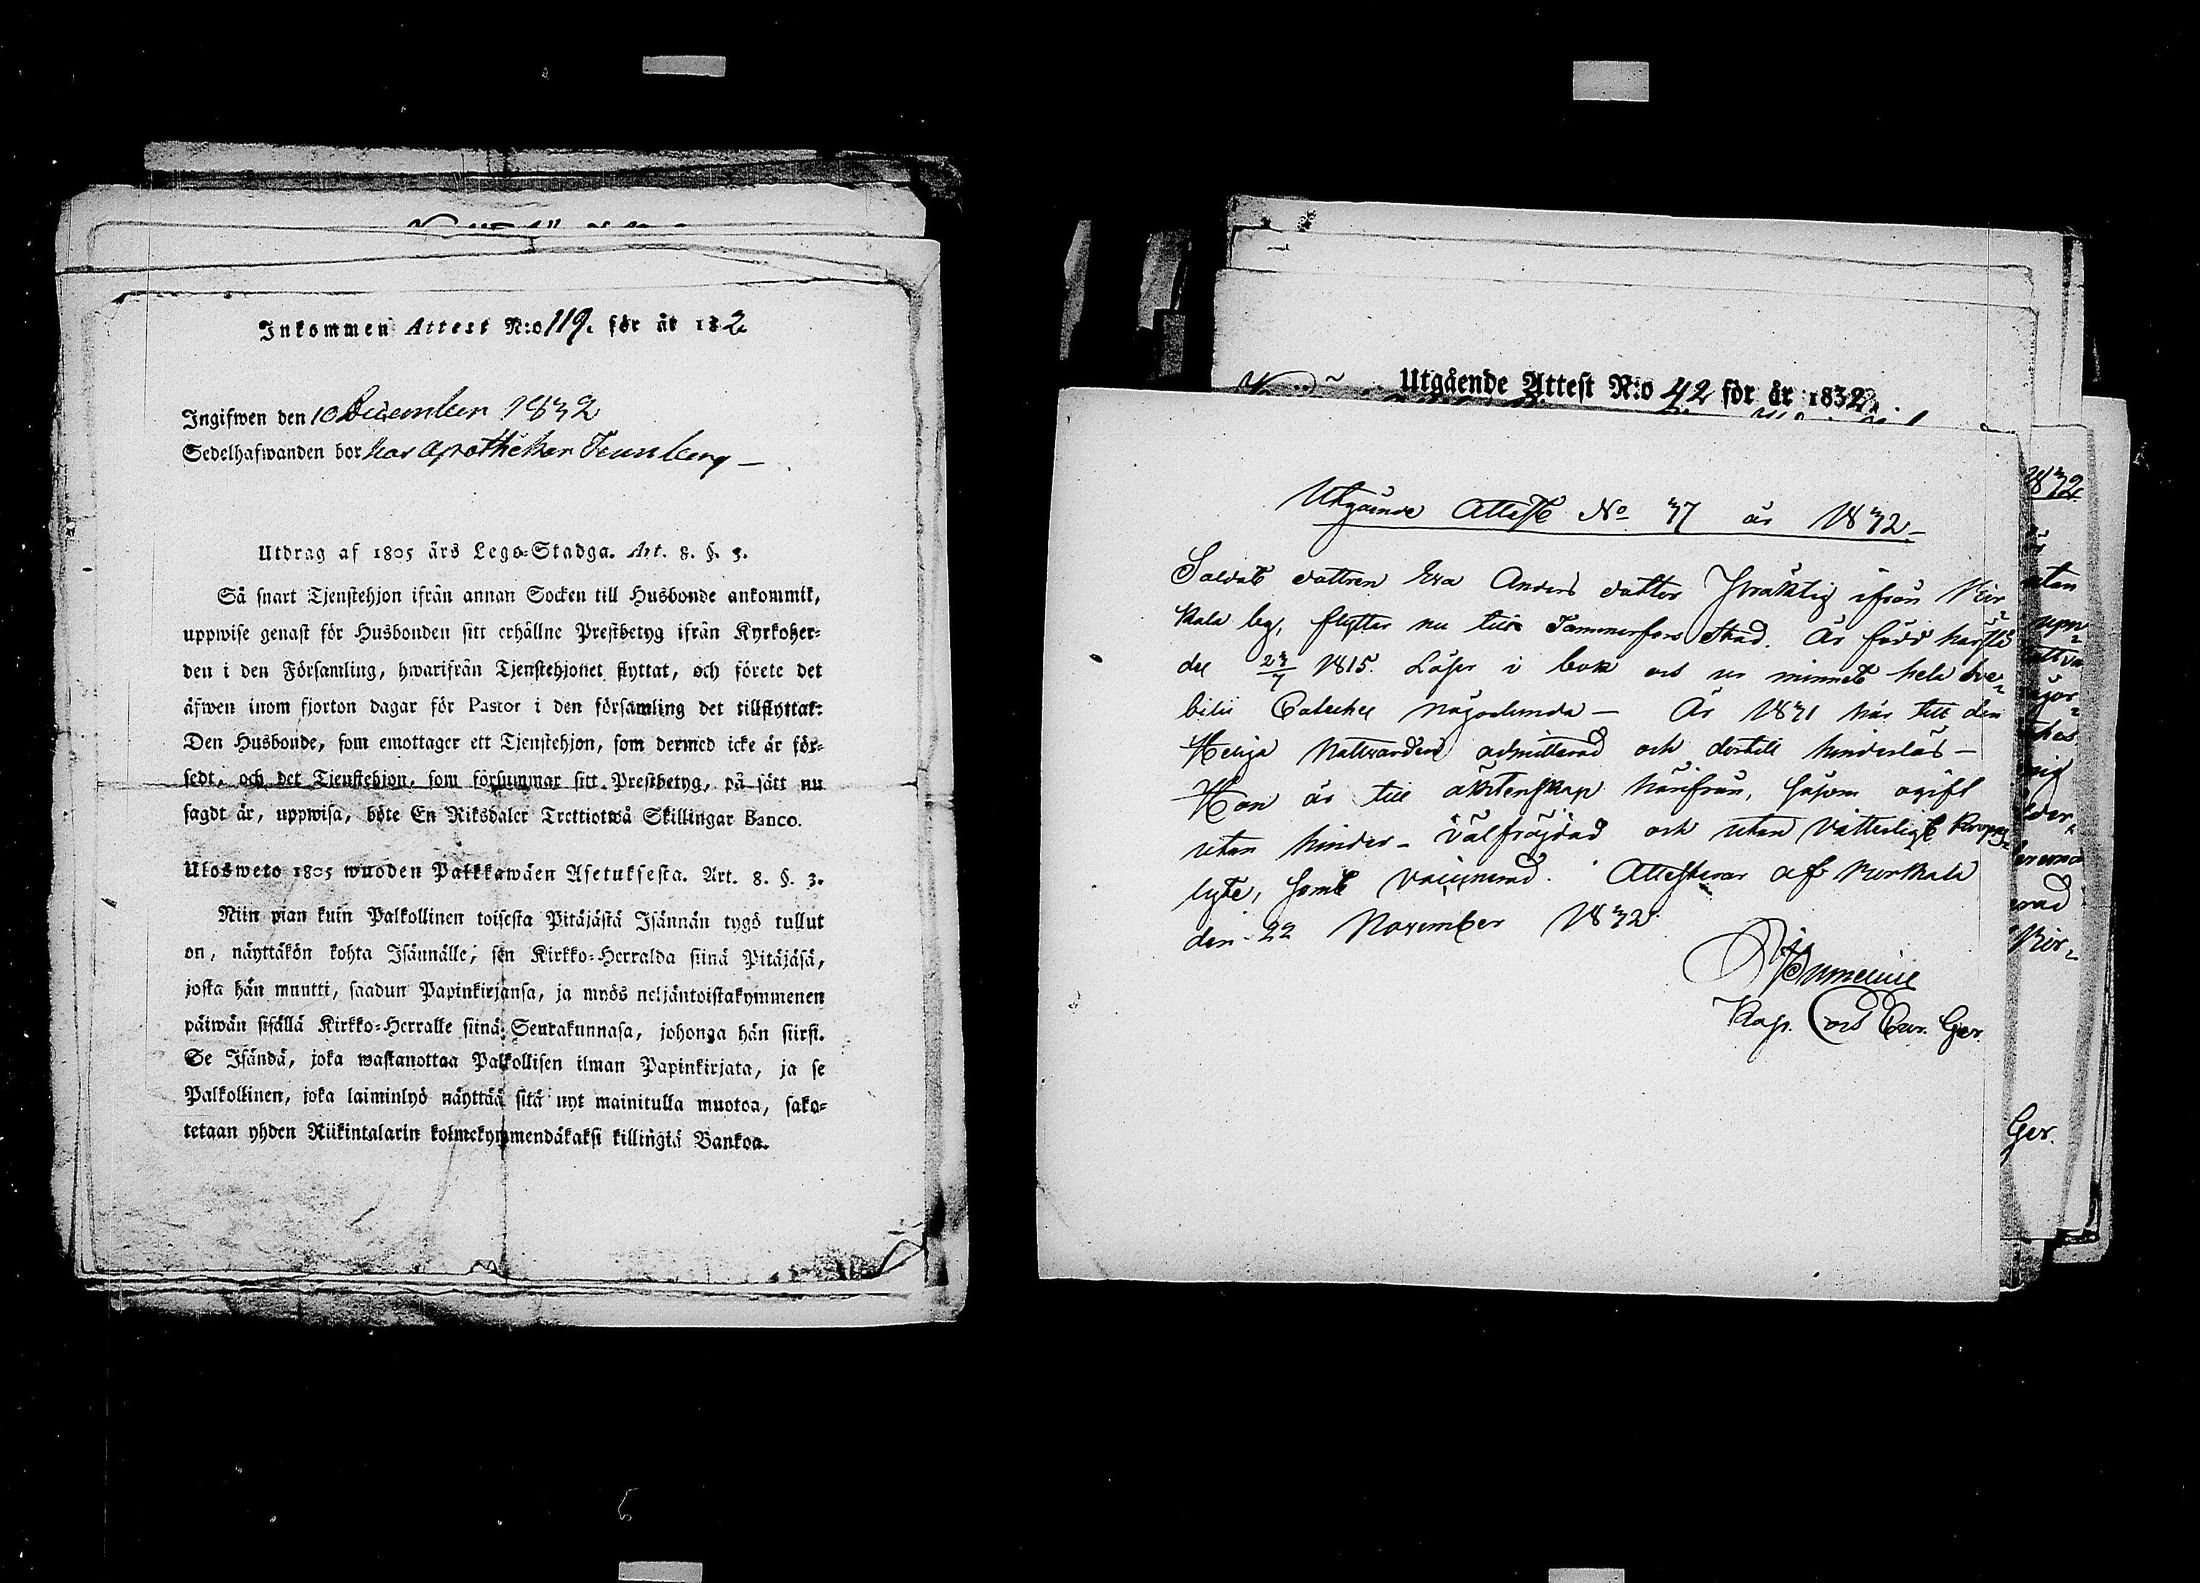 Inkommen Attest N:o 119. för år 182
Ingifwen den 10 December 1832
Sedelhafwanden bor hos Apothekar Tennberg –
Utdrag af 1805 års Lego-Stadga. Art. 8. §. 3.
Så snart Tjenstehjon ifrån annan Socken till Husbonde ankommit,
uppwise genast för Husbonden sitt erhållne Prestbetyg ifrån Kyrkoher-
den i den Församling, hwarifrån Tjenstehjonet flyttat, och förete det
äfwen inom fjorton dagar för Pastor i den församling det tillflyttat:
Den Husbonde, som emottager ett Tjenstehjon, som dermed icke är för-
sedt, och det Tjenstehjon, som försummar sitt Prestbetyg, på sätt nu
sagdt är, uppwisa, böte En Riksdaler Trettiotwå Skillingar Banco.
Ulosweto 1805 wuoden Palkkawäen Asetuksesta. Art. 8. §. 3.
Niin pian kuin Palkollinen toisesta Pitäjästä Isännän tygö tullut
on, näyttäkön kohta Isännälle, sen Kirkko-Herralda siinä Pitäjäsä,
josta hän muutti, saadun Papinkirjansa, ja myös neljäntoistakymmenen
päiwän sisällä Kirkko-Herralle siinä Seurakunnasa, johonga hän siirsi.
Se Isändä, joka wastanottaa Palkollisen ilman Papinkirjata, ja se
Palkollinen, joka laiminlyö näyttää sitä nyt mainitulla muotoa, sako-
tetaan yhden Riikintalarin kolmekymmendäkaksi killingiä Bankoa.
Utgående Attest N:o 42 för år 1832
Utgående Attest No 37 år 1832 –
Soldats dottren Eva Anders dotter Präktig ifrån Kir-
kala by, flyttar nu till Tammerfors Stad. Är född härstä
des 23/7 1815. Läser i bok och ur minnet hela Sve-
bilii Cateches någorlunda – År 1831 här till den
Heliga Nattvarden admitterad och dertill hinderlös –
Hon är till äktenskap härifrån, såsom ogift
utan hinder – välfräjdad och utan vitterligt kropps-
lyte, samt vaccinerad. Attesterar af Kurkala
den 22 November 1832
Kap. och Ger.
1832
utan
Kir-
Ger.